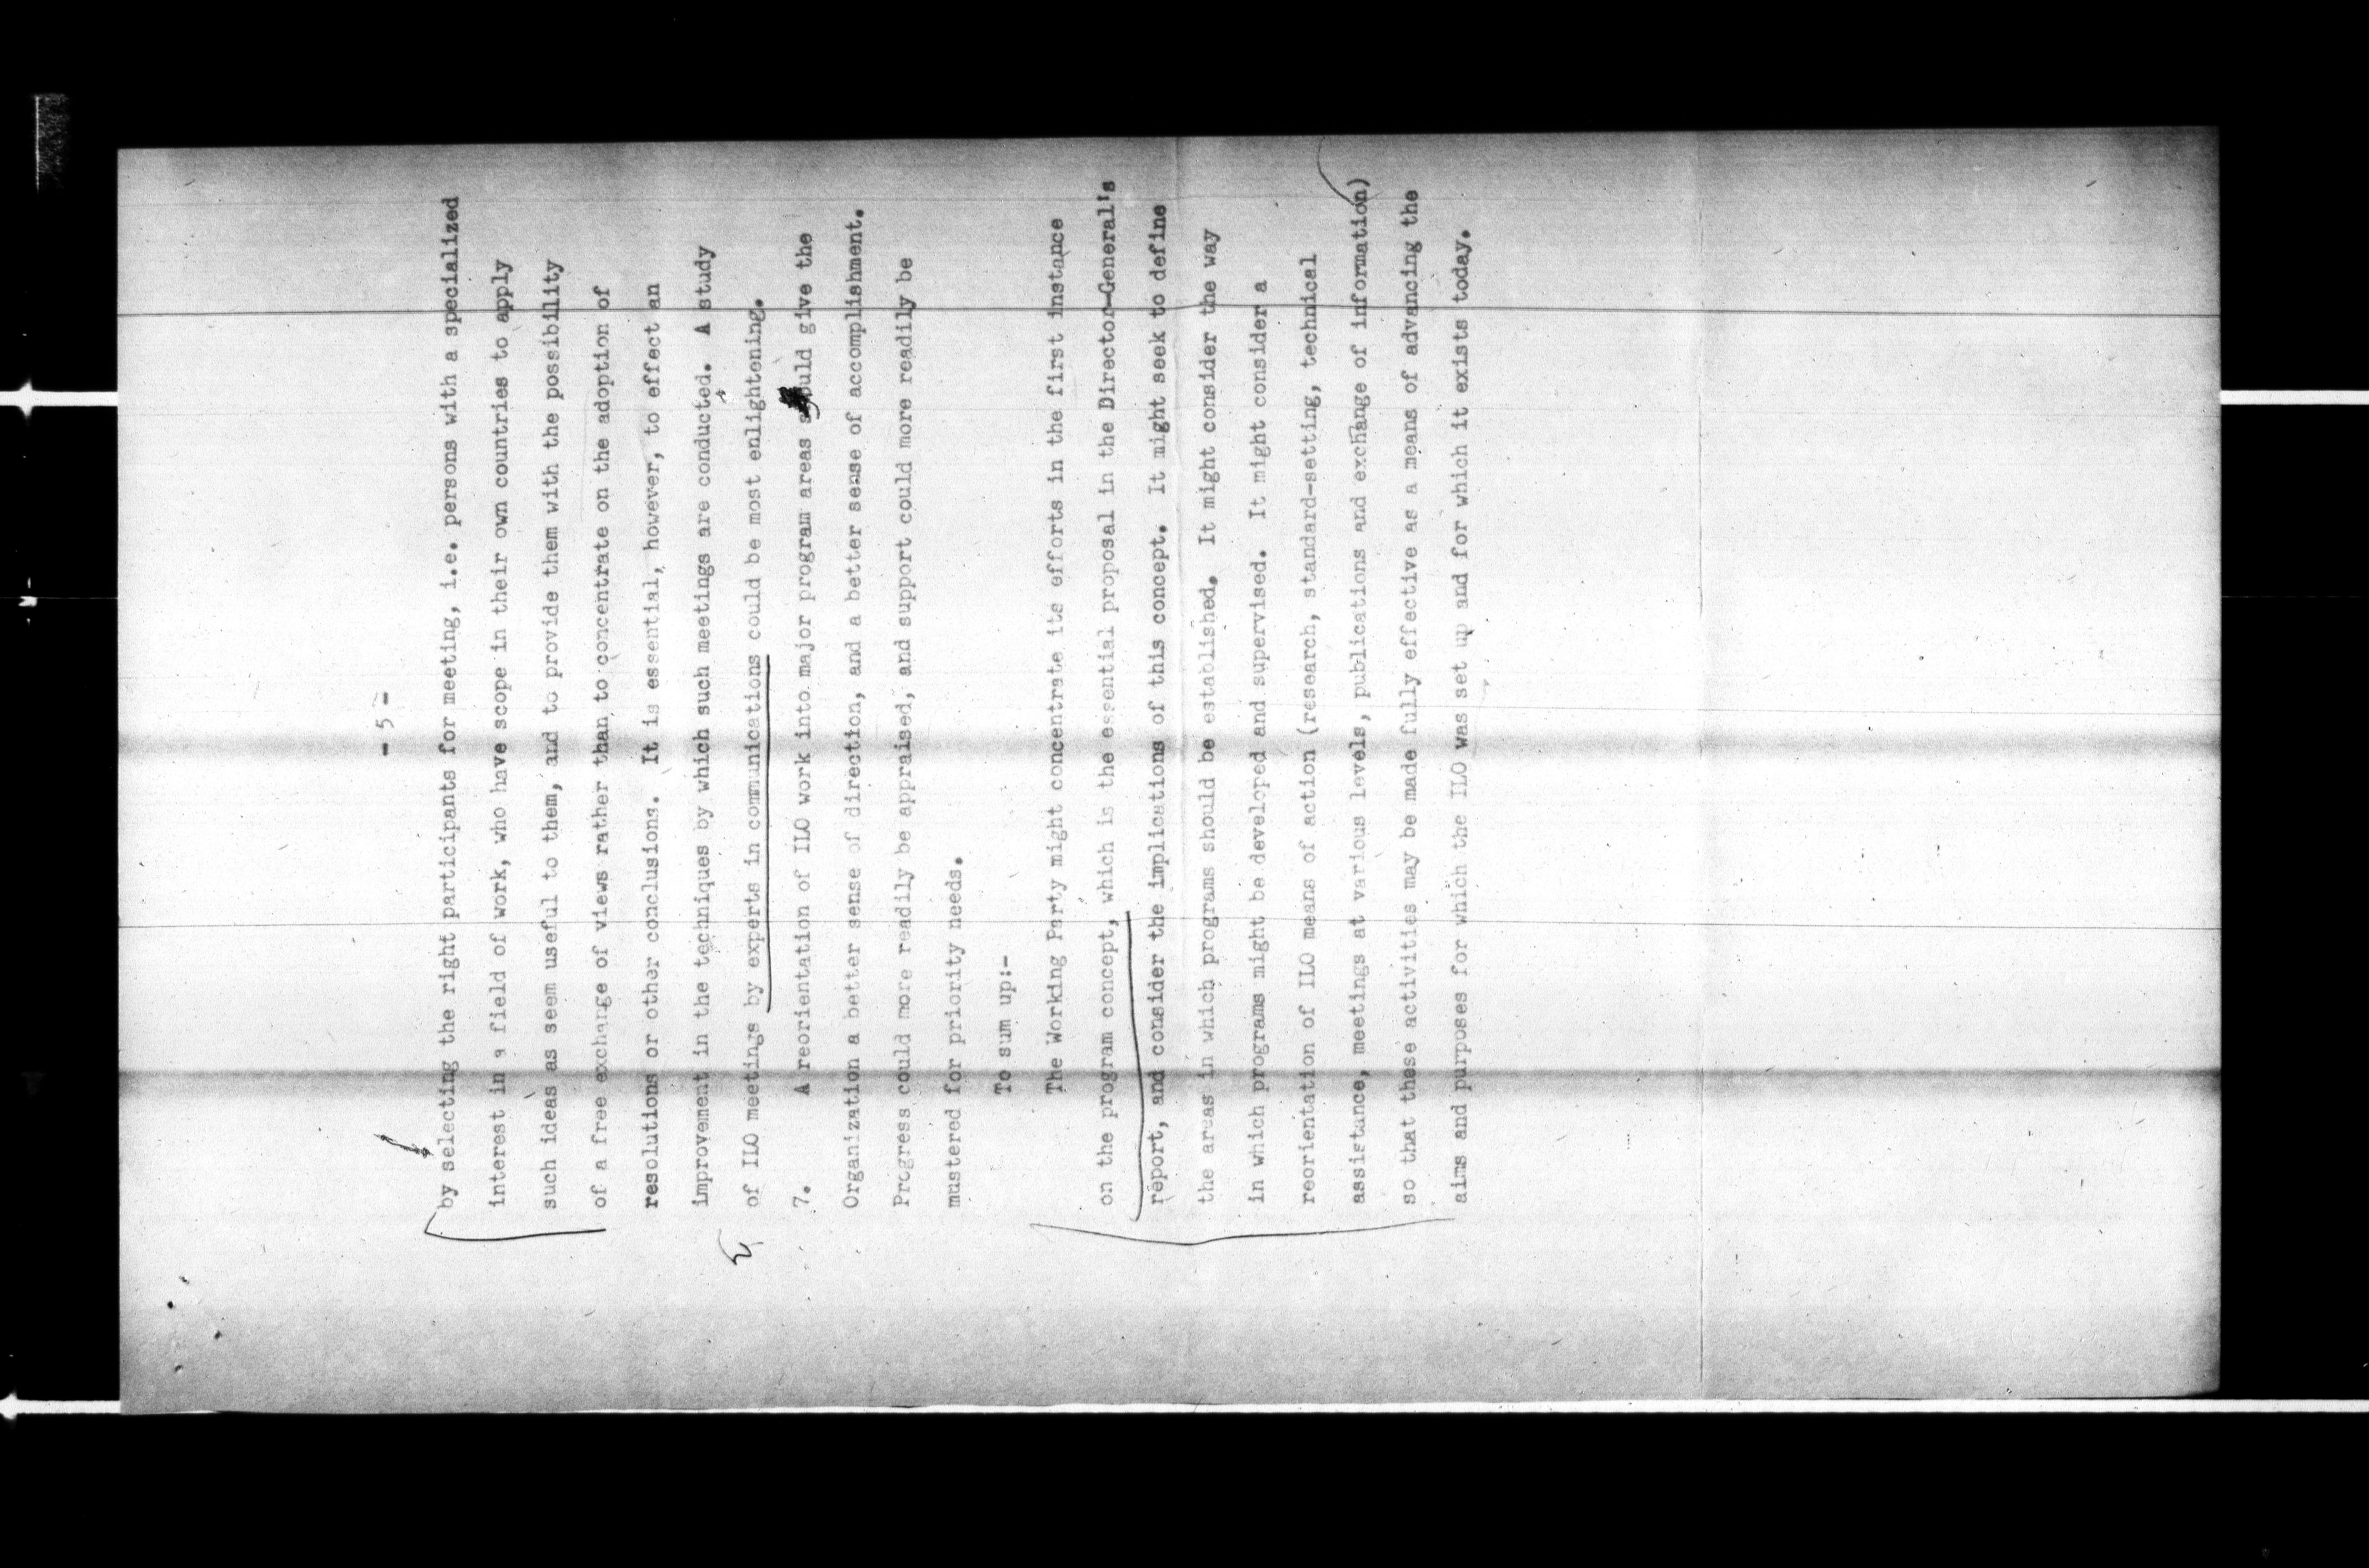 - 5 -
by selecting the right participants for meeting, i.e. persons with a specialized
interest in a field of work, who have scope in their own countries to apply
such ideas as seem useful to them, and to provide them with the possibility
of a free exchange of views rather than to concentrate on the adoption of
resolutions or other conclusions. It is essential, however, to effect an
improvement in the techniques by which such meetings are conducted. A study
of ILO meetings by experts in communications could be most enlightening.
7. A reorientation of ILO work into major program areas should give the
Organization a better sense of direction, and a better sense of accomplishment.
Progress could more readily be appraised, and support could more readily be
mustered for priority needs.
To sum up:-
The Working Party might concentrate its efforts in the first instance
on the program concept, which is the essential proposal in the Director-General's
report, and consider the implications of this concept. It might seek to define
the areas in which programs should be established. It might consider the way
in which programs might be developed and supervised. It might consider a
reorientation of ILO means of action (research, standard-setting, technical
assistance, meetings at various levels, publications and exchange of information)
so that these activities may be made fully effective as a means of advancing the
aims and purposes for which the ILO was set up and for which it exists today.